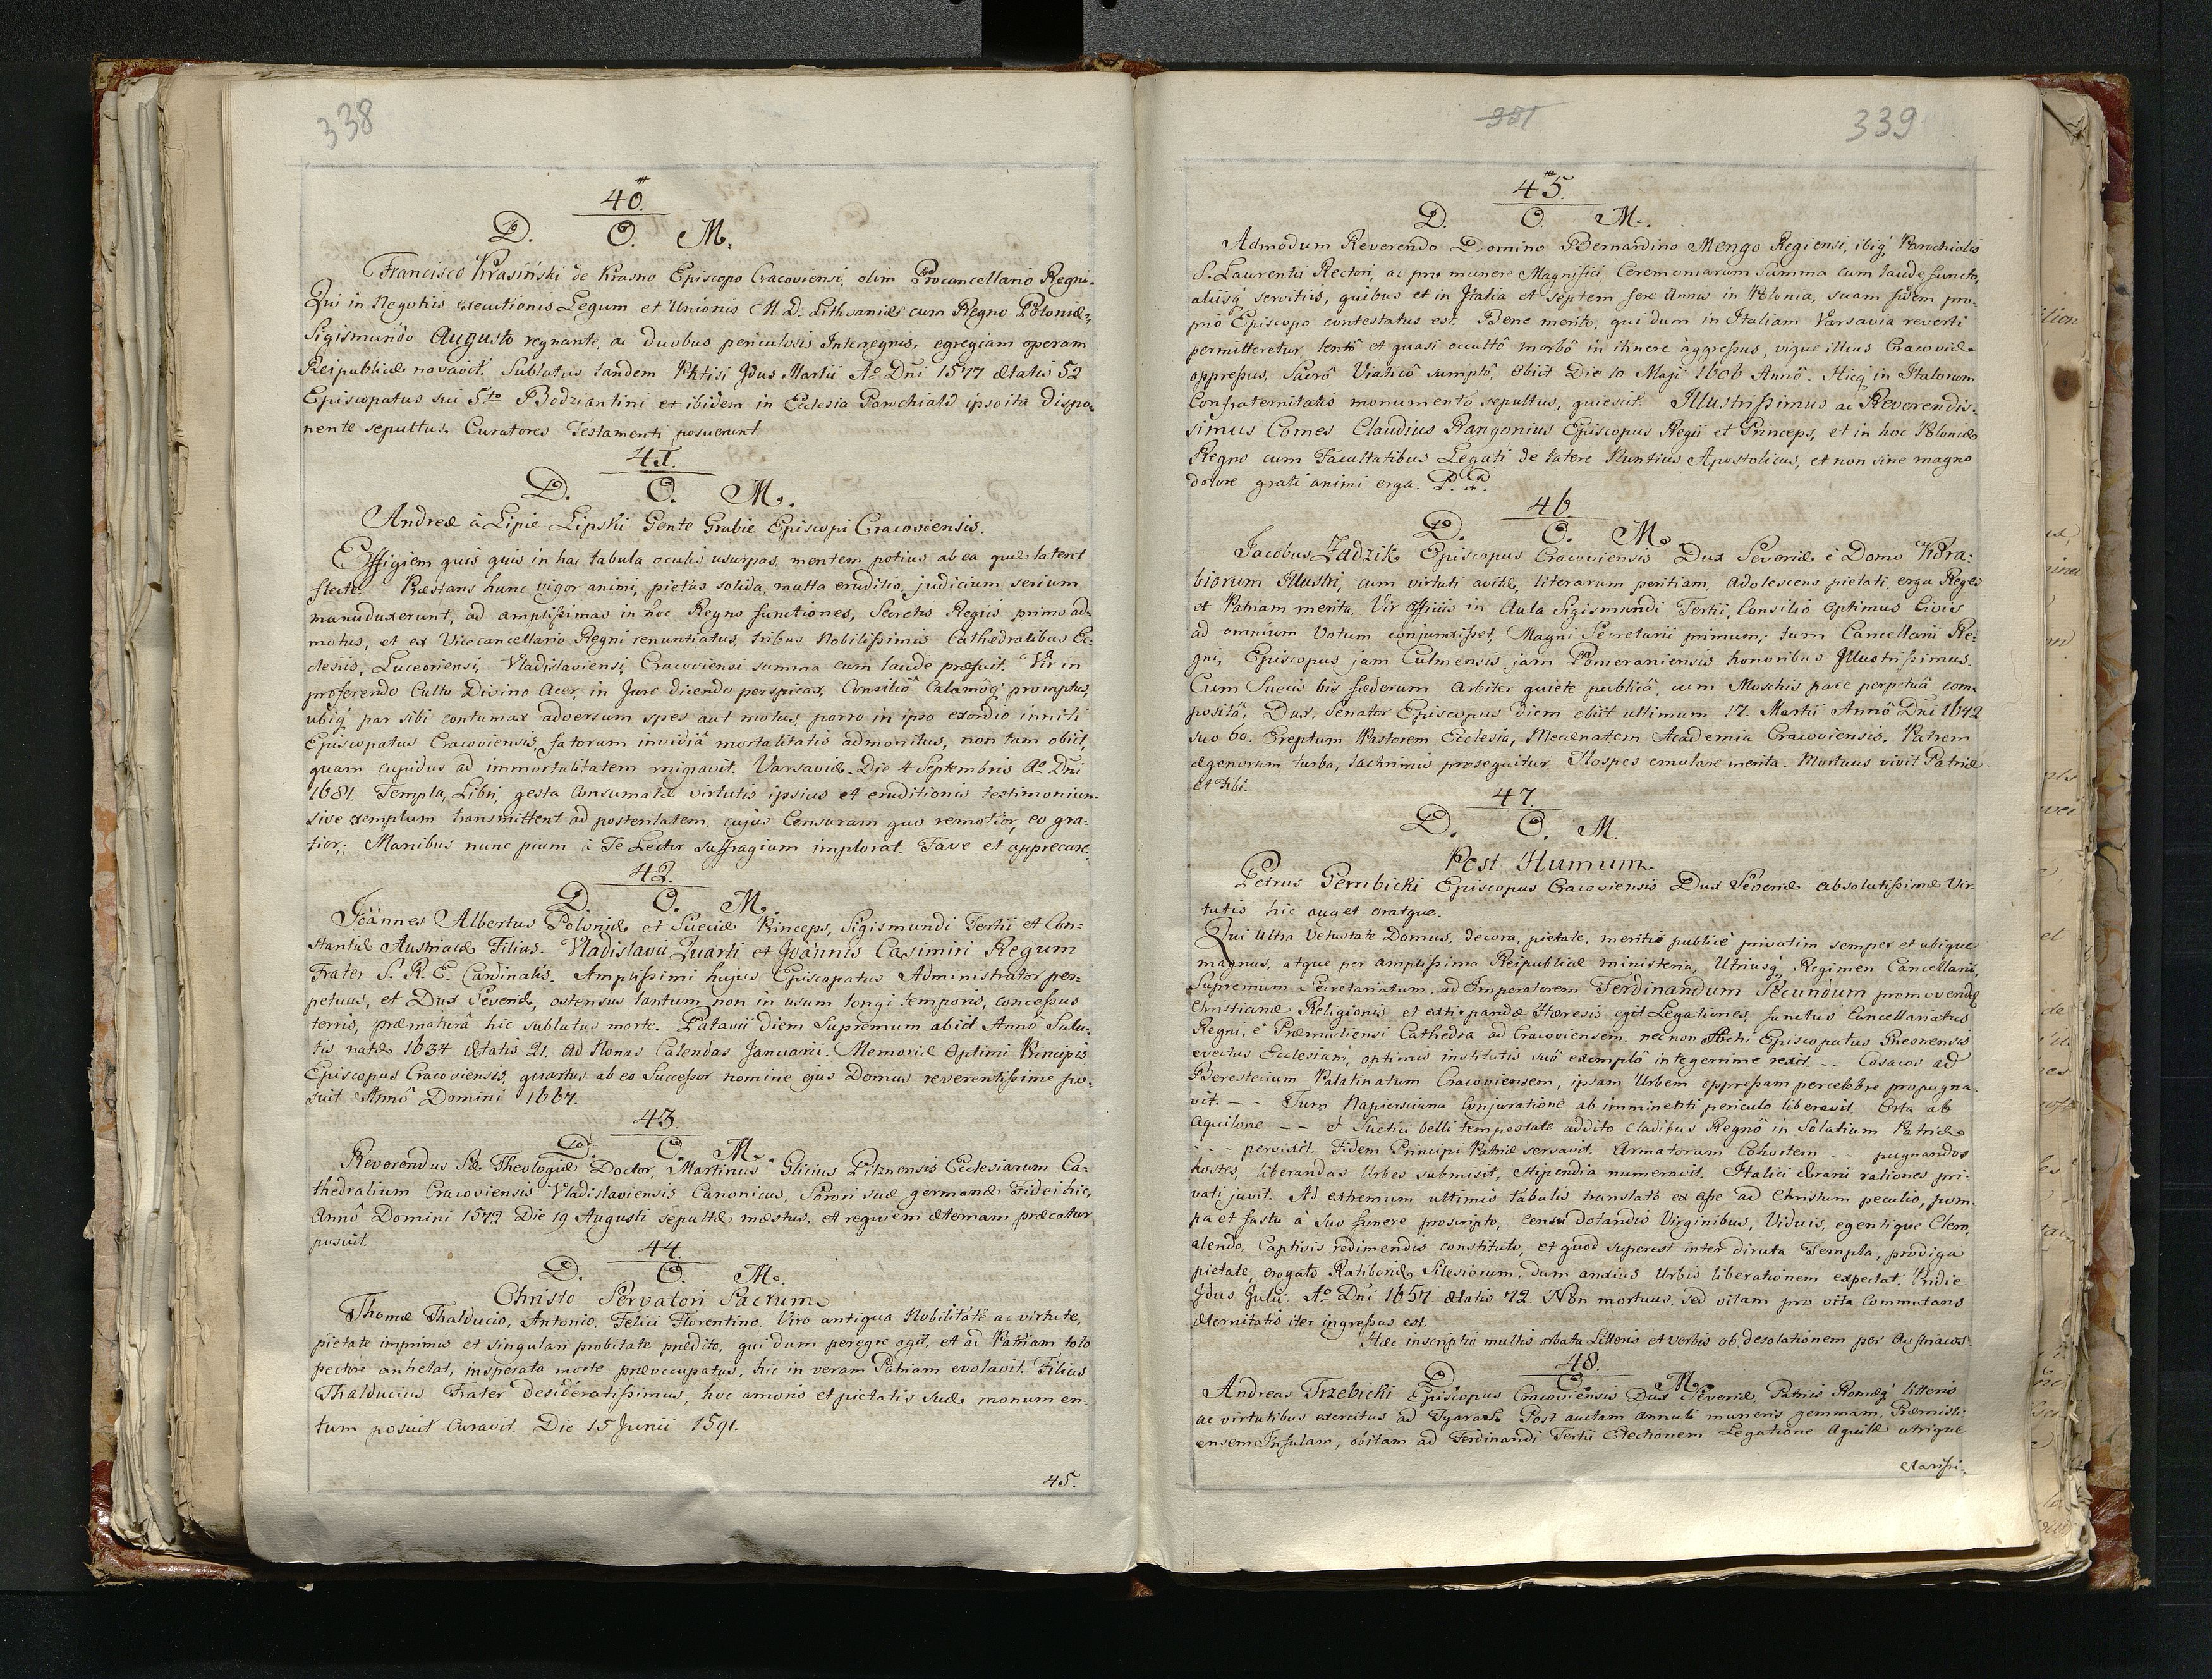 338
40.
D. O. M.
Francisco Krasiński de Krasno Episcopo Cracoviensi, olim Procancellario Regni.
Qui in Negotiis executionis Legum et Unionis M. D. Lithvaniæ cum Regno Poloniæ,
Sigismundo Augusto regnante, ac duobus periculosis Interegnis, egregiam operam
Reipublicæ navavit. Sublatus tandem Phtisi Idus Martii Ao Dni 1577 ætatis 52
Episcopatus sui 5to Bodziantini et ibidem in Ecclesia Parochiali ipso ita dispo-
nente sepultus. Curatores Testamenti posuerunt.
41.
D. O. M.
Andreæ à Lipie Lipski Gente Grabie Episcopi Cracoviensis.
Effigiem quis quis in hac tabula oculis usurpas, mentem potius ab ea quæ latent
flecte. Præstans hunc vigor animi, pietas solida, multa eruditio, judicium serium
manuduxerunt, ad amplissimas in hoc Regno functiones, Secretis Regiis primo ad-
motus, et ex Vicecancellario Regni renuntiatus, tribus Nobilissimis Cathedralibus Ec-
clesiis, Luceoriensi, Vladislaviensi, Cracoviensi summa cum laude præfuit. Vir in
proferendo Cultu Divino Acer, in Jure dicendo perspicax, Consiliô Calamôq promptus,
ubiq par sibi contumax adversum spes aut motus, porro in ipso exordio inniti
Episcopatus Cracoviensis, fatorum invidiâ mortalitatis admonitus, non tam obiit,
quam cupidus ad immortalitatem migravit. Varsaviæ Die 4 Septembris Ao Dni
1681. Templa, Libri, gesta Consumatæ virtutis ipsius et eruditionis testimonium
sive exemplum transmittent ad posteritatem, cujus Censuram quo remotior, eo gra-
tior; Manibus nunc pium à Te Lector suffragium implorat. Fave et apprecare.
42.
D. O. M.
Joannes Albertus Poloniæ et Sueciæ Princeps, Sigismundi Tertii et Con-
stantiæ Austriacæ Filius. Vladislavii Quarti et Joannis Casimiri Regum
Frater S. R. E. Cardinalis. Amplissimi hujus Episcopatus Administrator per-
petuus, et Dux Severiæ, ostensus tantum non in usum longi temporis, concessus
terris, præmaturâ hic sublatus morte. Patavii diem Supremum abiit Annô Salu-
tis natæ 1634 Ætatis 21. Ad Nonas Calendas Januarii. Memoriæ Optimi Principis
Episcopus Cracoviensis, quartus ab eo Successor nomine ejus Domus reverentissime po-
suit Annô Domini 1667.
43.
D. O. M.
Reverendus Sæ Theologiæ Doctor, Martinus Glicius Pilznensis Ecclesiarum Ca-
thedralium Cracoviensis Vladislaviensis Canonicus, Sorori suæ germanæ Fidei hic,
Annô Domini 1572 Die 19 Augusti sepultæ mæstus, et requiem æternam præcatur
posuit.
44.
D. O. M.
Christo Servatori Sacrum
Thomæ Thalducio, Antonio, Felici Florentino. Viro antiqua Nobilitate ac virtute,
pietate inprimis et singulari probitate prædito, qui dum peregre agit, et ad Patriam toto
pectore anhelat, insperata morte præoccupatus, hic in veram Patriam evolavit. Filius
Thalducius Frater desideratissimus, hoc amoris et pietatis suæ monumen-
tum posuit Curavit. Die 15 Junii 1591.
45.
339
45.
D. O. M.
Admodum Reverendo Domino Bernardino Mengo Regiensi, ibiq Parochialis
S. Laurentii Rectori, ac pro munere Magnifici Ceremoniarum Summa cum laude functo,
aliisq servitiis, quibus et in Italia et septem fere Annis in Polonia, suam fidem pro-
prio Episcopo contestatus est. Bene merito, qui dum in Italiam Varsavia reverti
permitteretur, lentô et quasi occultô morbô in itinere aggressus, vique illius Cracoviæ
oppressus, Sacrô Viaticô sumptô, obiit Die 10 Maji 1606 Annô. Hicq in Italorum
Confraternitatis monumento sepultus, quiescit. Illustrissimus ac Reverendis-
simus Comes Claudius Rangonius Episcopus Regii et Princeps, et in hoc Poloniæ
Regno cum Facultatibus Legati de latere Nuntius Apostolicus, et non sine magno
dolore grati animi ergo. P. P.
46.
D. O. M.
Jacobus Zadzik Episcopus Cracoviensis Dux Severiæ è Domo Kora-
biorum Illustri, cum virtuti avitæ, literarum peritiam, adolescens pietati erga Reges
et Patriam merita, Vir Officiis in Aula Sigismundi Tertii, Consilio optimus Civis
ad omnium Votum conjunxisset, Magni Secretarii primum, tum Cancellarii Re-
gni, Episcopus jam Culmensis jam Pomeraniensis honoribus Illustrissimus.
Cum Suecis bis fæderum arbiter quiete publicâ, cum Moschis pace perpetuâ com-
positâ, Dux, Senator Episcopus Diem obiit ultimum 17. Martii Annô Dni 1642
suo 60. Ereptum Pastorem Ecclesia, Mecænatem Academia Cracoviensis, Patrem
ægenorum turba, lachrimis prosequitur. Hospes emulare merita. Mortuus vivit Patriæ
et tibi.
47.
D. O. M.
Post Humum
Petrus Gembicki Episcopus Cracoviensis Dux Severiæ absolutissimæ Vir-
tutis hic auget oratque.
Qui ultra Vetustate Domus, decora, pietate, meritis publicè privatim semper et ubique
magnus, atque per amplissima Reipublicæ ministeria, Utriusq Regimen Cancellarii,
Supremum Secretariatum, ad Imperatorem Ferdinandum Secundum promovendæ
Christianæ Religionis et extirpandæ Hæresis egit Legationes, functus Cancellariatus
Regni, è Præmisliensi Cathedra ad Cracoviensem, nec non Archi Episcopatus Gnesnensis
evectus Ecclesiam, optimis institutis suô exemplô integerrime rexit. -- Cosacos ad
Beresteciim Palatinatum Cracoviensem, ipsam Urbem oppressam percelebre propugna-
vit. -- Tum Napiersciana Conjuratione ab imminenti periculo liberavit. Orta ab
Aquilone -- et Suetici belli tempestate addito cladibus Regnô in Solatium Patriæ
-- persisit. Fidem Principi Patriæ servavit. Armatorum Cohortem -- pugnandos
hostes, liberandas Urbes submisit, stipendia numeravit. Italici Ærarii rationes pri-
vati juvit. Ad extremum ultimis tabulis translatô ex asse ad Christum peculio, pom-
pa et fastu à suo funere proscripto, censu dotandis Virginibus, Viduis, egentique Clero,
alendo, Captivis redimendis constituto, et quod superest inter diruta Templa, prodiga
pietate, erogato Ratiboriæ Silesiorum, dum anxius Urbis liberationem expectat. Pridie
Idus Julii Ao Dni 1657 ætatis 72. Non mortuus, sed vitam pro vita Commutans
Æternitatis iter ingressus est.
Hæc inscriptio multis orbata Litteris et verbis ob desolationem per Austriacos.
48.
D. O. M.
Andreas Trzebicki Episcopus Cracoviensis Dux Severiæ, Patriis Romæq litteris
ac virtutibus exercitus ad Tyaram Post auctam annuli muneris gemmam, Præmisli-
ensem Insulam, obitam ad Ferdinandi Tertii Electionem Legatione Aquilæ utrique
clarissi-